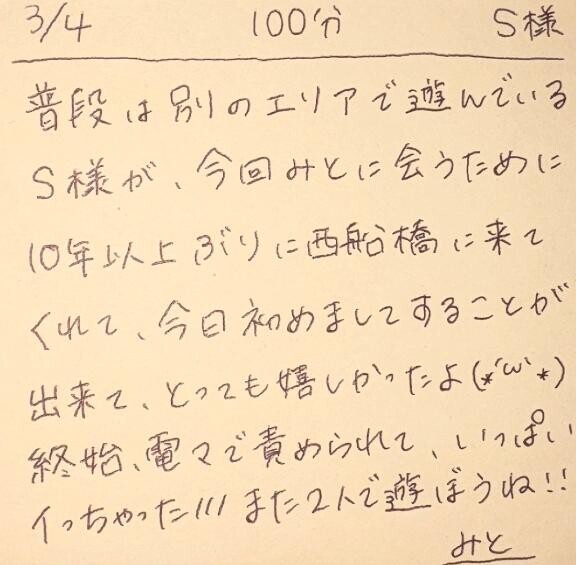 3/4 100分 S様
普段は別のエリアで遊んでいる
S様が、今回みとに会うために
10年以上ぶりに西船橋に来て
くれて、今日初めましてすることが
出来て、とっても嬉しかったよ(*´ω`*)
終始、電マで責められて、いっぱい
イっちゃった/// また2人で遊ぼうね!!
みと